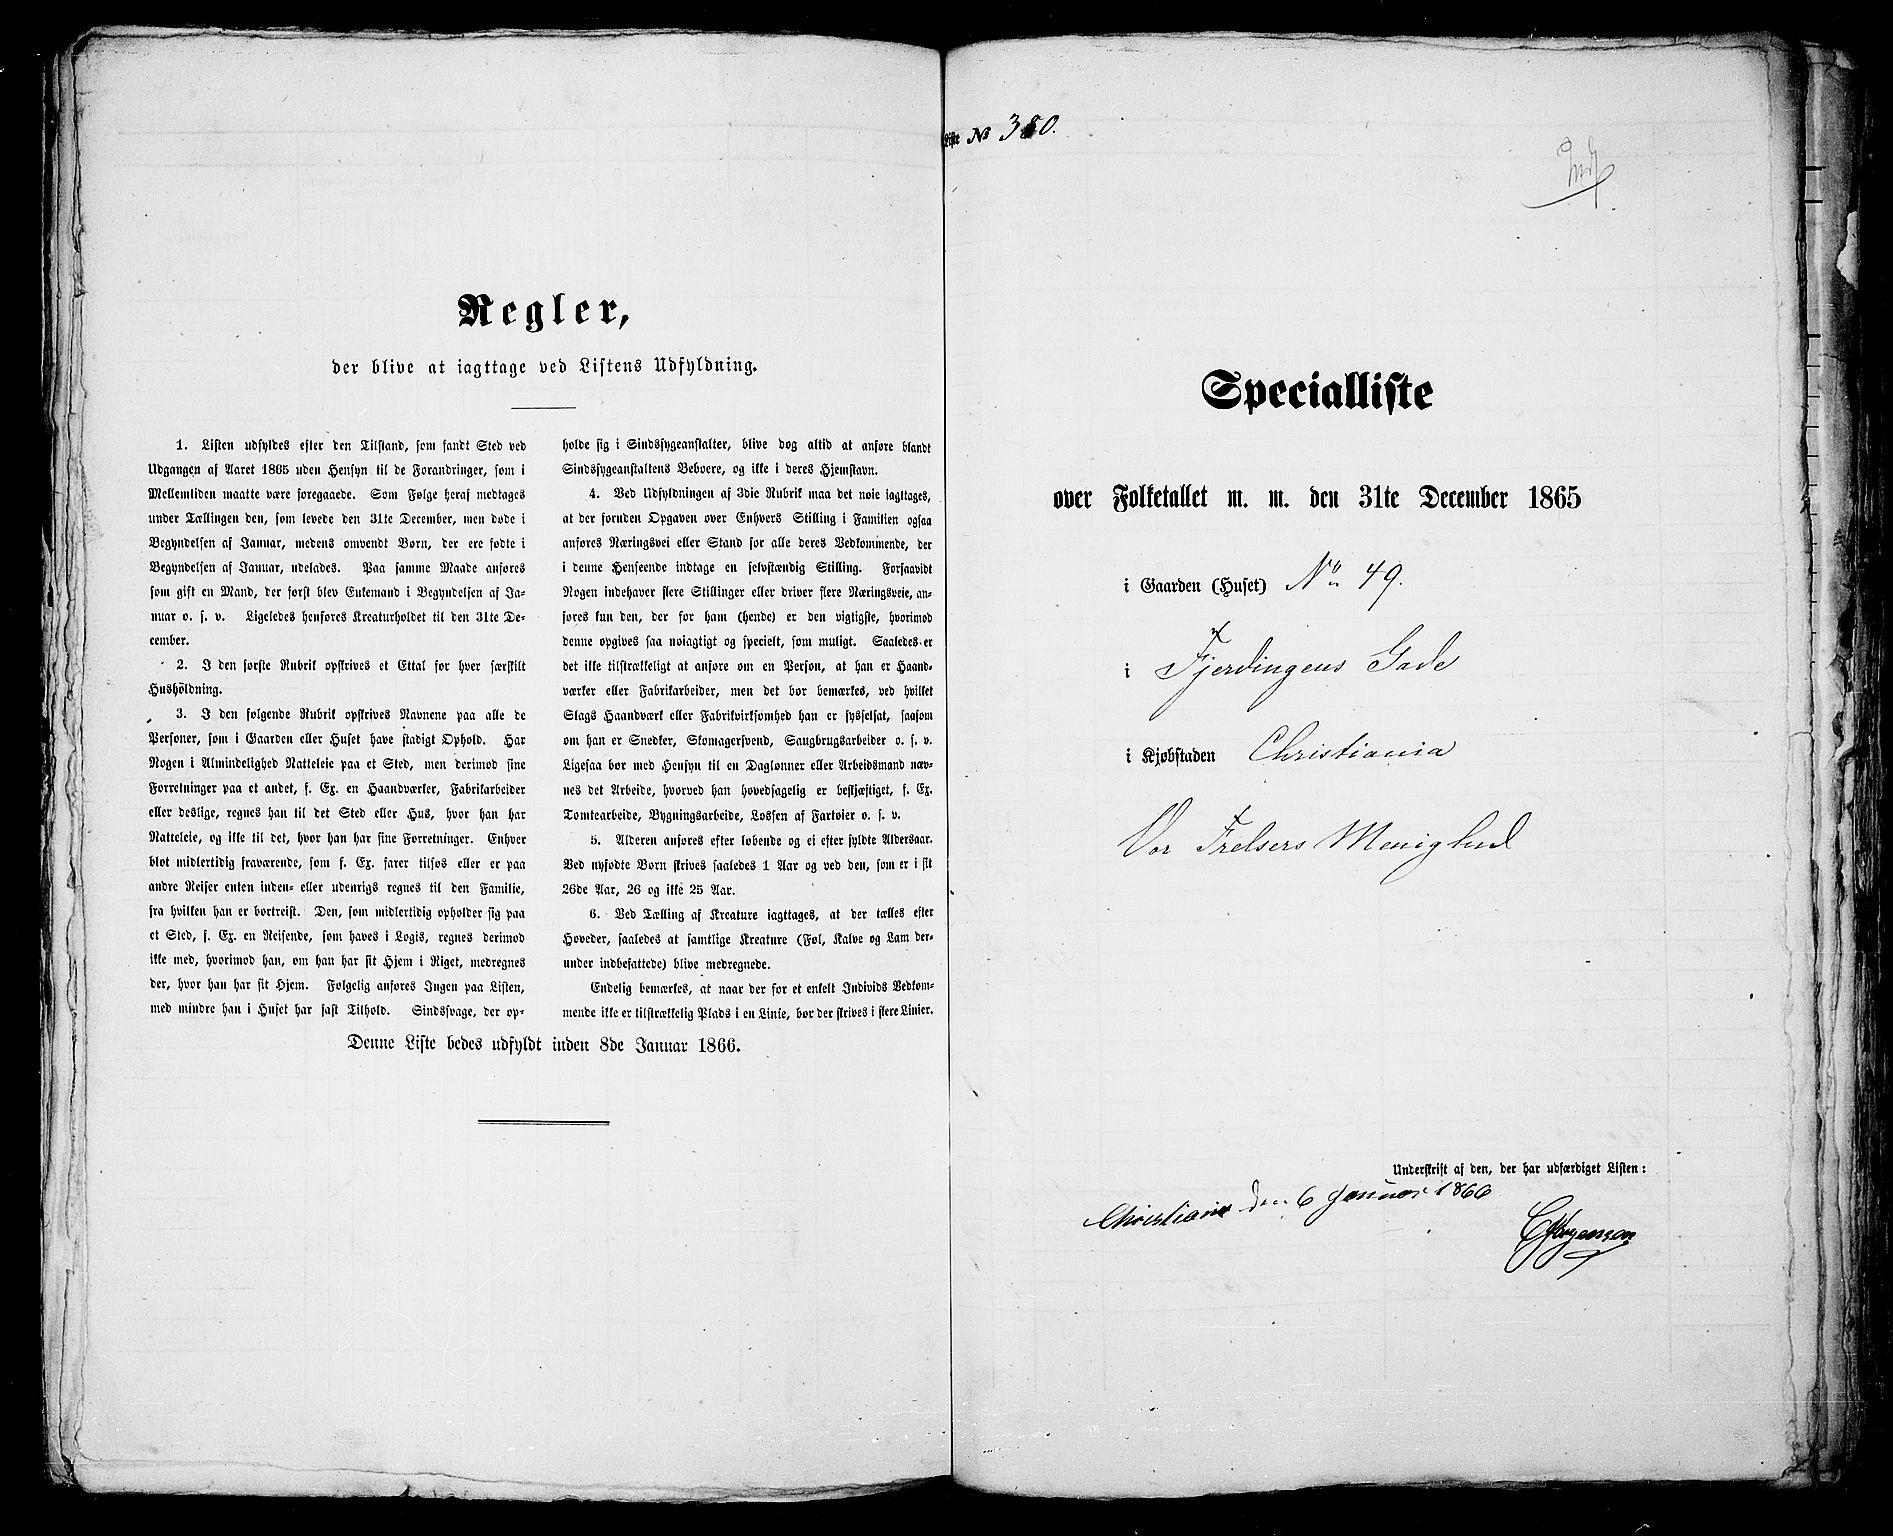 Regler,
der blive at iagttage ved Listens Udfyldning.
1. Listen udfyldes efter den Tilstand, som fandt Sted ved
Udgangen af Aaret 1865 uden Hensyn til de Forandringer, som i
Mellemtiden maatte være foregaaede. Som Følge heraf medtages
under Tællingen den, som levede den 31te December, men døde i
Begyndelsen af Januar, medens omvendt Børn, der ere fødte i
Begyndelsen af Januar, udelades. Paa samme Maade anføres
som gift en Mand, der først blev Enkemand i Begyndelsen af Ja-
nuar o. s. v. Ligeledes henføres Kreaturholdet til den 31te De-
cember.
2. I den første Rubrik opskrives et Ettal for hver særskilt
Husholdning.
3. I den følgende Rubrik opskrives Navnene paa alle de
Personer, som i Gaarden eller Huset have stadigt Ophold. Har
Nogen i Almindelighed Natteleie paa et Sted, men derimod sine
Forretninger paa et andet, f. Ex. en Haandværker, Fabrikarbeider
eller deslige, regnes han til det Sted eller Hus, hvor han har
Natteleie, og ikke til det, hvor han har sine Forretninger. Enhver
blot midlertidig fraværende, som f. Ex. farer tilsøs eller er paa
andre Reiser enten inden- eller udenrigs regnes til den Familie,
fra hvilken han er bortreist. Den, som midlertidig opholder sig paa
et Sted, f. Ex. en Reisende, som haves i Logis, regnes derimod
ikke med, hvorimod han, om han har sit Hjem i Riget, medregnes
der, hvor han har sit Hjem. Følgelig anføres Ingen paa Listen,
med mindre han i Huset har fast Tilhold. Sindssvage, der op-
holde sig i Sindssygeanstalter, blive dog altid at anføre blandt
Sindssygeanstaltens Beboere, og ikke i deres Hjemstavn.
4. Ved Udfyldningen af 3die Rubrik maa det nøie iagttages,
at der foruden Opgaven over Enhvers Stilling i Familien ogsaa
anføres Næringsvei eller Stand for alle deres Vedkommende, der
i denne Henseende indtage en selvstændig Stilling. Forsaavidt
Nogen indehaver flere Stillinger eller driver flere Næringsveie, an-
føres kun den, der for ham (hende) er den vigtigste, hvorimod
denne opgives saa nøiagtigt og specielt, som muligt. Saaledes er
det ikke tilstrækkeligt at anføre om en Person, at han er Haand-
værker eller Fabrikarbeider, men det bør bemærkes, ved hvilket
Slags Haandværk eller Fabrikvirksomhed han er sysselsat, saasom
om han er Snedker, Skomagersvend, Saugbrugsarbeider o. s. v.
Ligesaa bør med Hensyn til en Daglønner eller Arbeidsmand næv-
nes det Arbeide, hvorved han hovedsagelig er beskjæftiget, f. Ex.
Tomtearbeide, Bygningsarbeide, Lossen af Fartøier o. s. v.
5. Alderen anføres efter løbende og ei efter fyldte Aldersaar.
Ved nyfødte Børn skrives saaledes 1 Aar og ved den, som er i sit
26de Aar, 26 og ikke 25 Aar.
6. Ved Tælling af Kreature iagttages, at der tælles efter
Hoveder, saaledes at samtlige Kreature (Føl, Kalve og Lam der-
under indbefattede) blive medregnede.
Endelig bemærkes, at naar der for et enkelt Individs Vedkom-
mende ikke er tilstrækkelig Plads i en Linie, bør der skrives i flere Linier.
Denne Liste bedes udfyldt inden 8de Januar 1866.
Liste No 380.
Specialliste
over Folketallet m. m. den 31te December 1865
i Gaarden (Huset) No 49.
i Fjerdingens Gade
i Kjøbstaden Christiania
Vor Frelsers Menighed
Underskrift af den, der har udfærdiget Listen:
Christiania den 6 Januar 1866
C Jørgensen